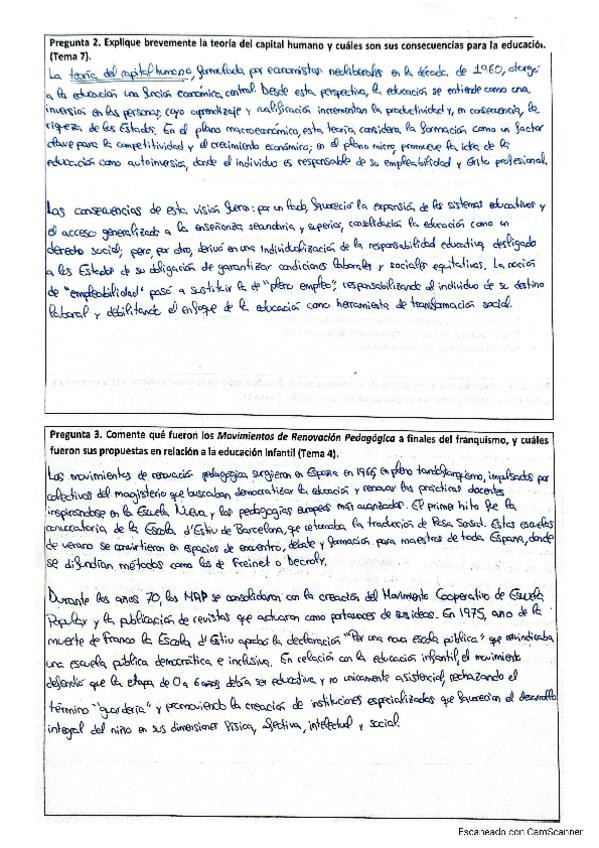 Pregunta 2. Explique brevemente la teoría del capital humano y cuáles son sus consecuencias para la educación.
(Tema 7).
La teoría del capital humano, formulada por economistas neoliberales en la década de 1960, otorgó
a la educación una función económica central. Desde esta perspectiva, la educación se entiende como una
inversión en las personas, cuyo aprendizaje y cualificación incrementan la productividad y, en consecuencia, la
riqueza de los Estados. En el plano macroeconómico, esta teoría considera la formación como un factor
clave para la competitividad y el crecimiento económico; en el plano micro, promueve la idea de la
educación como autoinversión, donde el individuo es responsable de su empleabilidad y éxito profesional.
Las consecuencias de esta visión fueron: por un lado, favoreció la expansión de los sistemas educativos y
el acceso generalizado a la enseñanza secundaria y superior, consolidando la educación como un
derecho social; pero, por otro, derivó en una individualización de la responsabilidad educativa, desligado
a los Estados de su obligación de garantizar condiciones laborales y sociales equitativas. La noción
de "empleabilidad" pasó a sustituir la de "pleno empleo", responsabilizando al individuo de su destino
laboral y debilitando el enfoque de la educación como herramienta de transformación social.
Pregunta 3. Comente qué fueron los Movimientos de Renovación Pedagógica a finales del franquismo, y cuáles
fueron sus propuestas en relación a la educación infantil (Tema 4).
Los movimientos de renovación pedagógica surgieron en España en 1965 en pleno tardofranquismo, impulsados por
colectivos del magisterio que buscaban democratizar la educación y renovar las prácticas docentes
inspirándose en la Escuela Nueva y las pedagogías europeas más avanzadas. El primer hito fue la
convocatoria de la Escola d'Estiu de Barcelona, que retomaba la tradución de Rosa Sensat. Estas escuelas
de verano se convirtieron en espacios de encuentro, debate y formación para maestros de toda España, donde
se difundían métodos como los de Freinet o Decroly.
Durante los años 70, los MRP se consolidaron con la creación del Movimiento Cooperativo de Escuela
Popular y la publicación de revistas que actuaron como portavoces de sus ideas. En 1975, año de la
muerte de Franco la Escola d'Estiu aprobó la declaración "Por una nova escola pública" que reivindicaba
una escuela pública democrática e inclusiva. En relación con la educación infantil, el movimiento
defendió que la etapa de 0 a 6 años debía ser educativa y no unicamente asistencial, rechazando el
término "guardería" y promoviendo la creación de instituciones especializadas que favorecieran el desarrollo
integral del niño en sus dimensiones física, afectiva, intelectual y social.
Escaneado con CamScanner